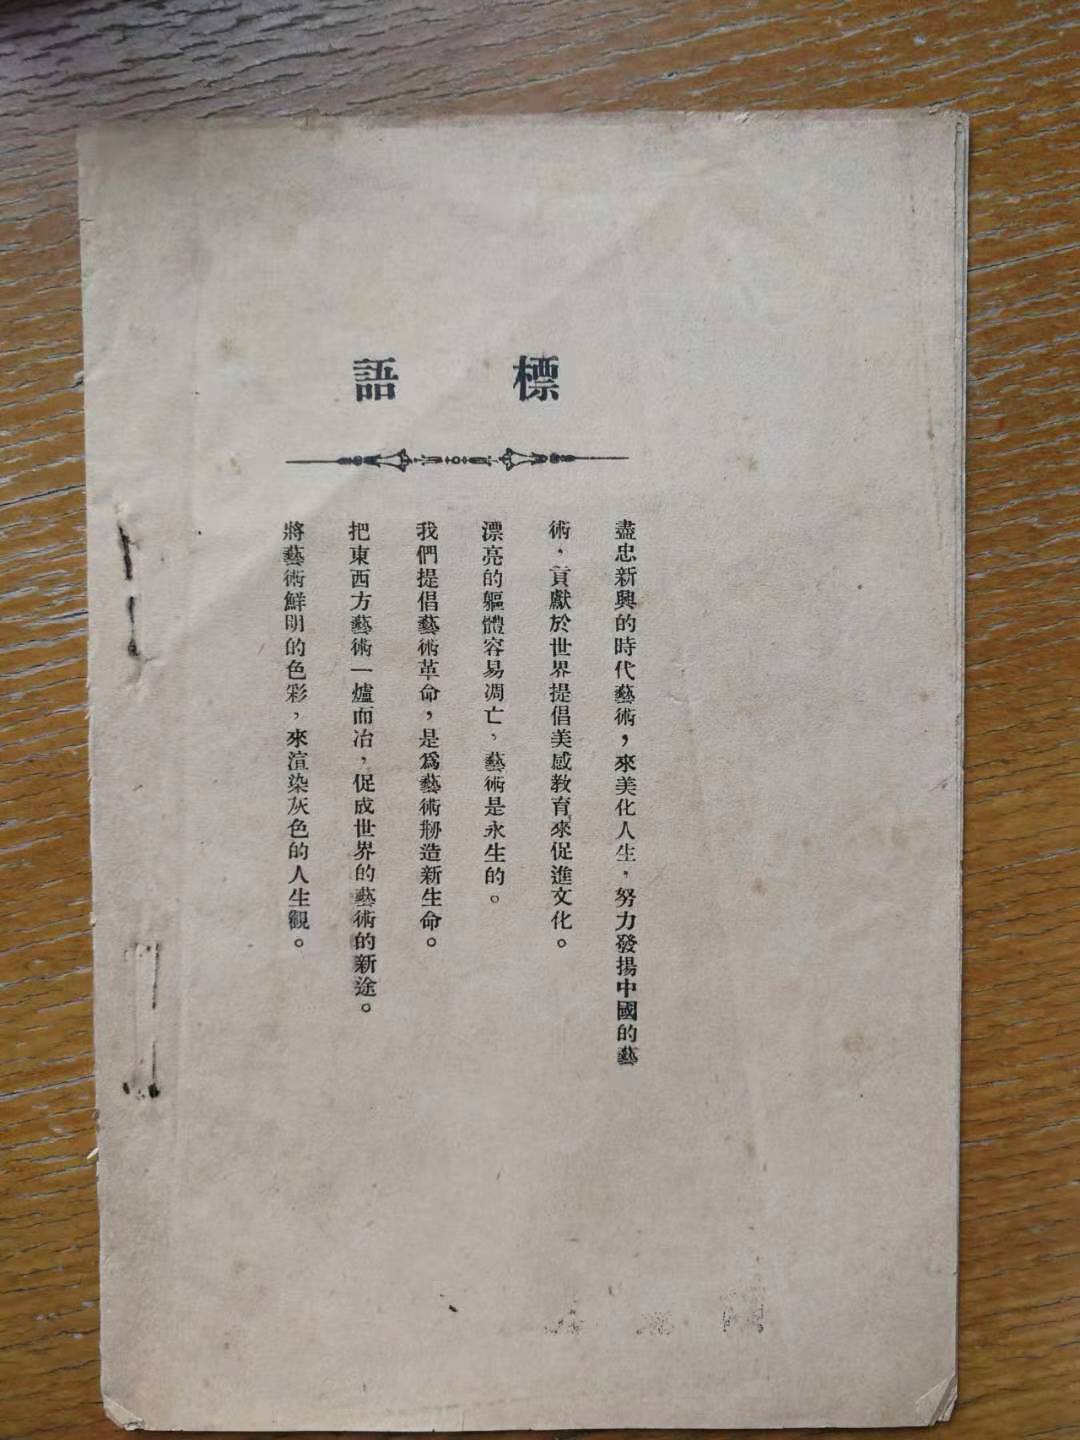 標語
盡忠新興的時代藝術，來美化人生，努力發揚中國的藝
術，貢獻於世界提倡美感教育來促進文化。
漂亮的軀體容易凋亡，藝術是永生的。
我們提倡藝術革命，是爲藝術刱造新生命。
把東西方藝術一爐而冶，促成世界的藝術的新途。
將藝術鮮明的色彩，來渲染灰色的人生觀。